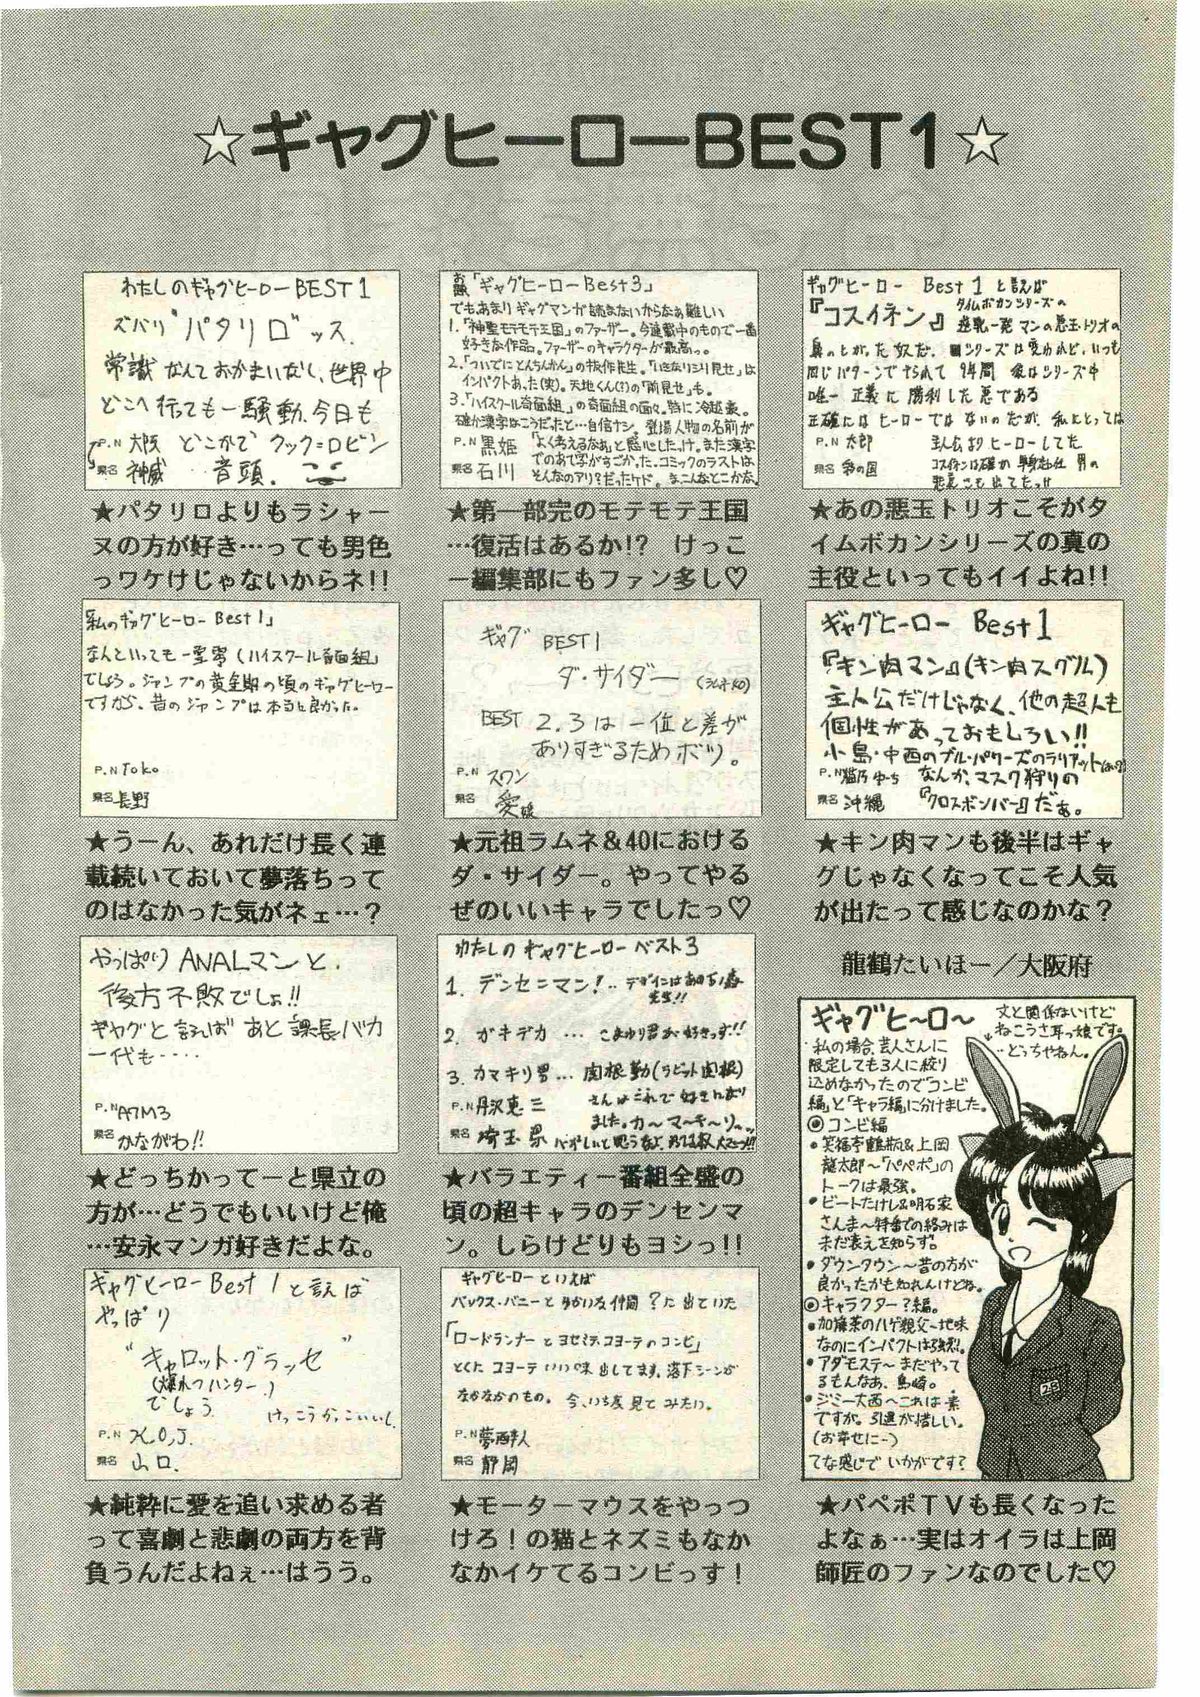 ☆ギャグヒーローBEST1☆
わたしのギャグヒーローBEST1
ズバリ"パタリロ"ッス.
常識なんておかまいなし、世界中
どこへ行っても一騒動、今日も
P.N 大阪 どこかで クック=ロビン
県名 神威 音頭.
★パタリロよりもラシャー
ヌの方が好き…っても男色
っワケけじゃないからネ!!
お題「ギャグヒーローBest3」
でも、あまりギャグマンが読まないからなぁ難しい
1.「神聖モテモテ王国」のファーザー。今連載中のもので一番
好きな作品。ファーザーのキャラクターが最高っ。
2.「ついでにとんちんかん」の抜作先生。「いきなり尻見せ」は
インパクトあった(笑)。天地くん(?)の「前見せ」も。
3.「ハイスクール奇面組」の奇面組の面々。特に冷越豪。
確か漢字はこうだったと…自信ナシ。登場人物の名前が
P.N 黒姫 「よく考えるなぁ」と感心したっけ。また漢字
県名 石川 でのあて字がすごかった。コミックのラストは
そんなのアリ?だったケド。ま、こんなとこかな。
★第一部完のモテモテ王国
…復活はあるか!? けっこ
ー編集部にもファン多し♡
ギャグヒーロー Best 1 と言えば
『コスイネン』タイムボカンシリーズの
逆転一発マンの悪玉トリオの
同じパターンでやられて 9年間 彼はシリーズ中
唯一 正義に勝利した悪である
正確にはヒーローではないのだが、私にとっては
P.N 太郎 主人公よりヒーローしてた
県名 彩の国
★あの悪玉トリオこそがタ
イムボカンシリーズの真の
主役といってもイイよね!!
「私のギャグヒーロー Best1」
なんといっても一堂零(ハイスクール奇面組)
でしょう。ジャンプの黄金期の頃のギャグヒーロー
ですが、昔のジャンプは本当に良かった。
P.N Toko
県名 長野
★うーん、あれだけ長く連
載続いておいて夢落ちって
のはなかった気がネェ…?
ギャグ BEST1
ダ・サイダー (ラムネ40)
BEST 2.3は一位と差が
ありすぎるためボツ。
P.N スワン
県名 愛媛
★元祖ラムネ&40における
ダ・サイダー。やってやる
ぜのいいキャラでしたっ♡
ギャグヒーロー Best1
『キン肉マン』(キン肉スグル)
主人公だけじゃなく、他の超人も
個性があっておもしろい!!
小島・中西のブル・パワーズのラリアット
なんか、マスク狩りの
県名 沖縄 『クロスボンバー』だぁ。
★キン肉マンも後半はギャ
グじゃなくなってこそ人気
が出たって感じなのかな?
やっぱり ANALマンと、
後方不敗でしょ!!
ギャグと言えば あと 課長バカ
一代も‥‥
P.N A7M3
県名 かながわ!!
★どっちかってーと県立の
方が…どうでもいいけど俺
…安永マンガ好きだよな。
わたしの ギャグヒーロー ベスト3
1. デンセンマン!‥デザインはあの石ノ森
先生!!
2. ガキデカ … こまわり君が好きっす!!
3. カマキリ男… 関根勤(ラビット関根)
P.N 丹沢恵三 さんはこれで好きになり
ました。カ〜マ〜キ〜リ〜ッ
県名 埼玉県
★バラエティー番組全盛の
頃の超キャラのデンセンマ
ン。しらけどりもヨシっ!!
龍鶴たいほー／大阪府
ギャグヒ〜ロ〜
文と関係ないけど
ねこうさ耳っ娘です。
…どっちやねん。
私の場合、芸人さんに
限定しても3人に絞り
込めなかったので「コンビ
編」と「キャラ編」に分けました。
◎コンビ編
・笑福亭鶴瓶&上岡
龍太郎〜「パペポ」の
トークは最強。
・ビートたけし&明石家
さんま〜特番での絡みは
未だ衰えを知らず。
・ダウンタウン〜昔の方が
良かったかも知れんけどね。
◎キャラクター?編。
・加藤茶のハゲ親父〜地味
なのにインパクトは強烈。
・アダモステ〜まだやって
るもんなあ、島崎。
・ジミー大西〜これは素
ですが。引退が惜しい。
(お幸せに〜)
てな感じでいかがです?
★パペポTVも長くなった
よなぁ…実はオイラは上岡
師匠のファンなのでした♡
ギャグヒーロー Best 1 と言えば
やっぱり
"キャロット・グラッセ"
(爆れつハンター)
でしょう
けっこうかっこいいし.
P.N K.O.J.
県名 山口.
★純粋に愛を追い求める者
って喜劇と悲劇の両方を背
負うんだよねぇ…はうう。
ギャグヒーロー といえば
バックス・バニーとゆかいな仲間 ?に出ていた
「ロードランナーとヨセミテ・コヨーテのコンビ」
とくに コヨーテいい味出してます。落下シーンが
なかなかのもの。 今、いち度見てみたい。
県名 静岡
★モーターマウスをやっつ
けろ！の猫とネズミもなか
なかイケてるコンビっす！